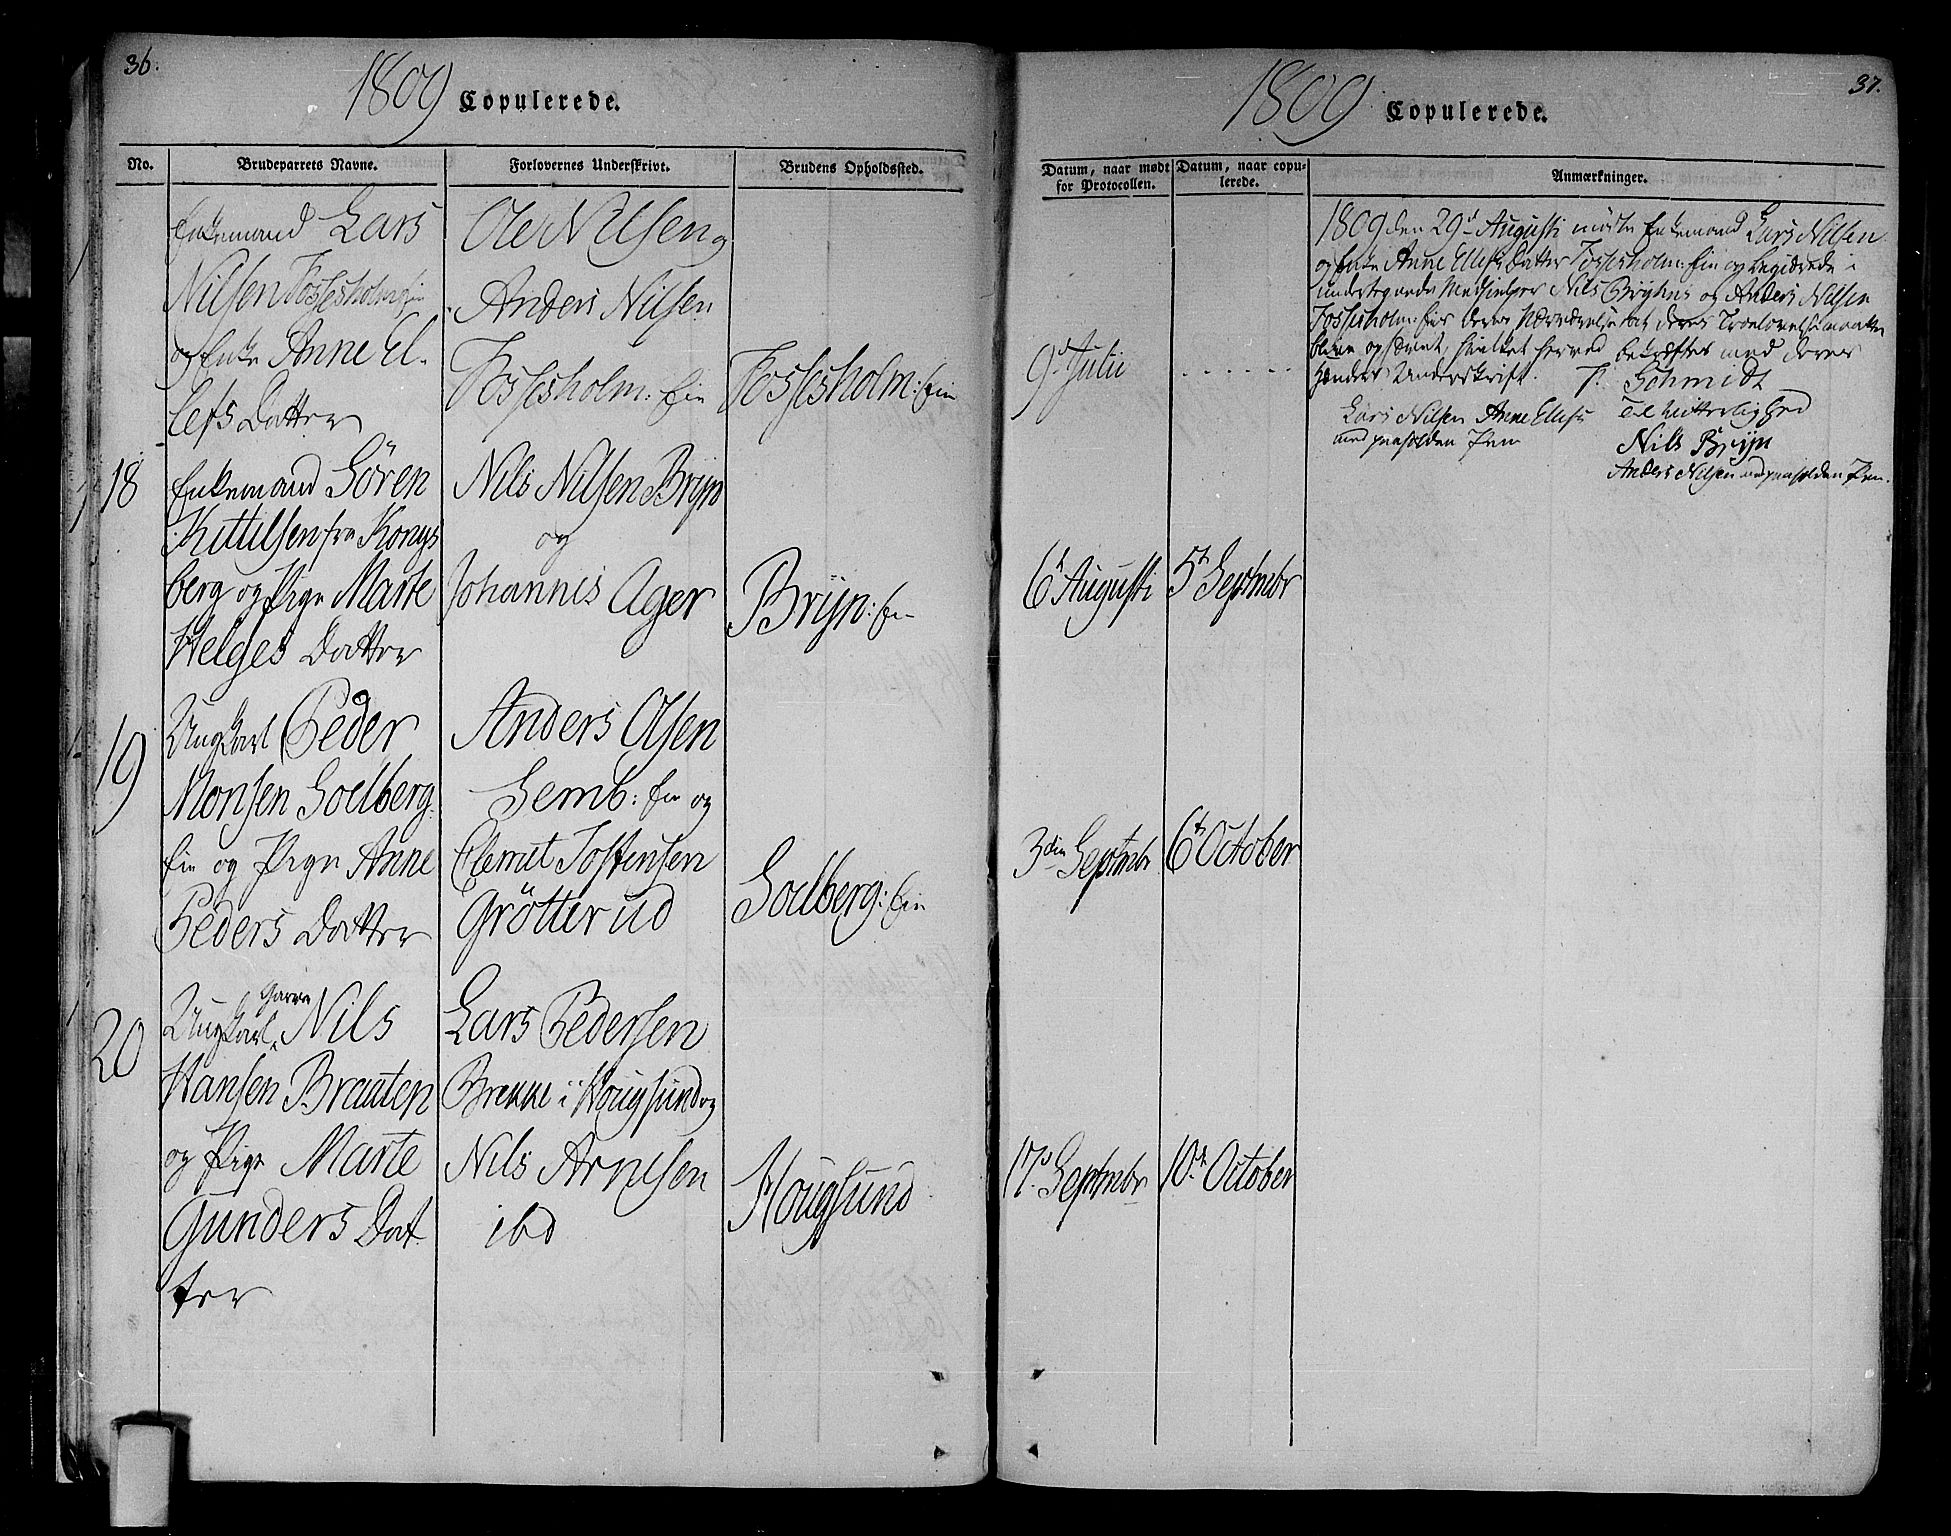 36.
1809 Copulerede.
No.
Brudeparrets Navne.
Forlovernes Underskrivt.
Brudens Opholdssted.
Enkemand Lars
Nilsen Fossesholm: Eie
og Enke Anne El-
lefs Datter
Ole Nilsen og
Anders Nilsen
Fossesholm: Eie
Fossesholm: Eie
18
Enkemand Sören
Kittilsen fra Kongs
berg og Pige Marte
Helges Datter
Nils Nilsen Bryn
og
Johannis Ager
Bryn: Eie
19
Ungkarl Peder
Monsen Soelberg
Eie og Pige Anne
Peders Datter
Anders Olsen
Semb: Eie og
Clemet Tostensen
Grötterud
Soelberg: Eie
20
Ungkarl Nils
Hansen Braaten
og Pige Marte
Gunders Dat
ter
Lars Pedersen
Brekke i Hougsund og
Nils Arnesen
ibd
Hougsund
37.
1809 Copulerede.
Datum, naar mødt
for Protocollen.
Datum, naar copu-
lerede.
Anmærkninger.
9d Julii
1809 den 29d Augusti mødte Enkemand Lars Nilsen
og Enke Anne Ellefs Datter Fossesholm: Eie og begierede i
undertegnede Medhielper Nils Bryns og Anders Nilsen
Fossesholm: Eies deres Nærværelse at deres Trolovelse maatte
blive ophævet, hvilket herved bekræftes med deres
Hænders Underskrift. T. Schmidt
Lars Nilsen Anne Ellefs
med paaholden Pen
Til Vitterlighed
Nils Bryn
Anders Nilsen med paaholden Pen.
6t Augusti
5t Septembr
3die Septembr
6t October
17d Septembr
10d October